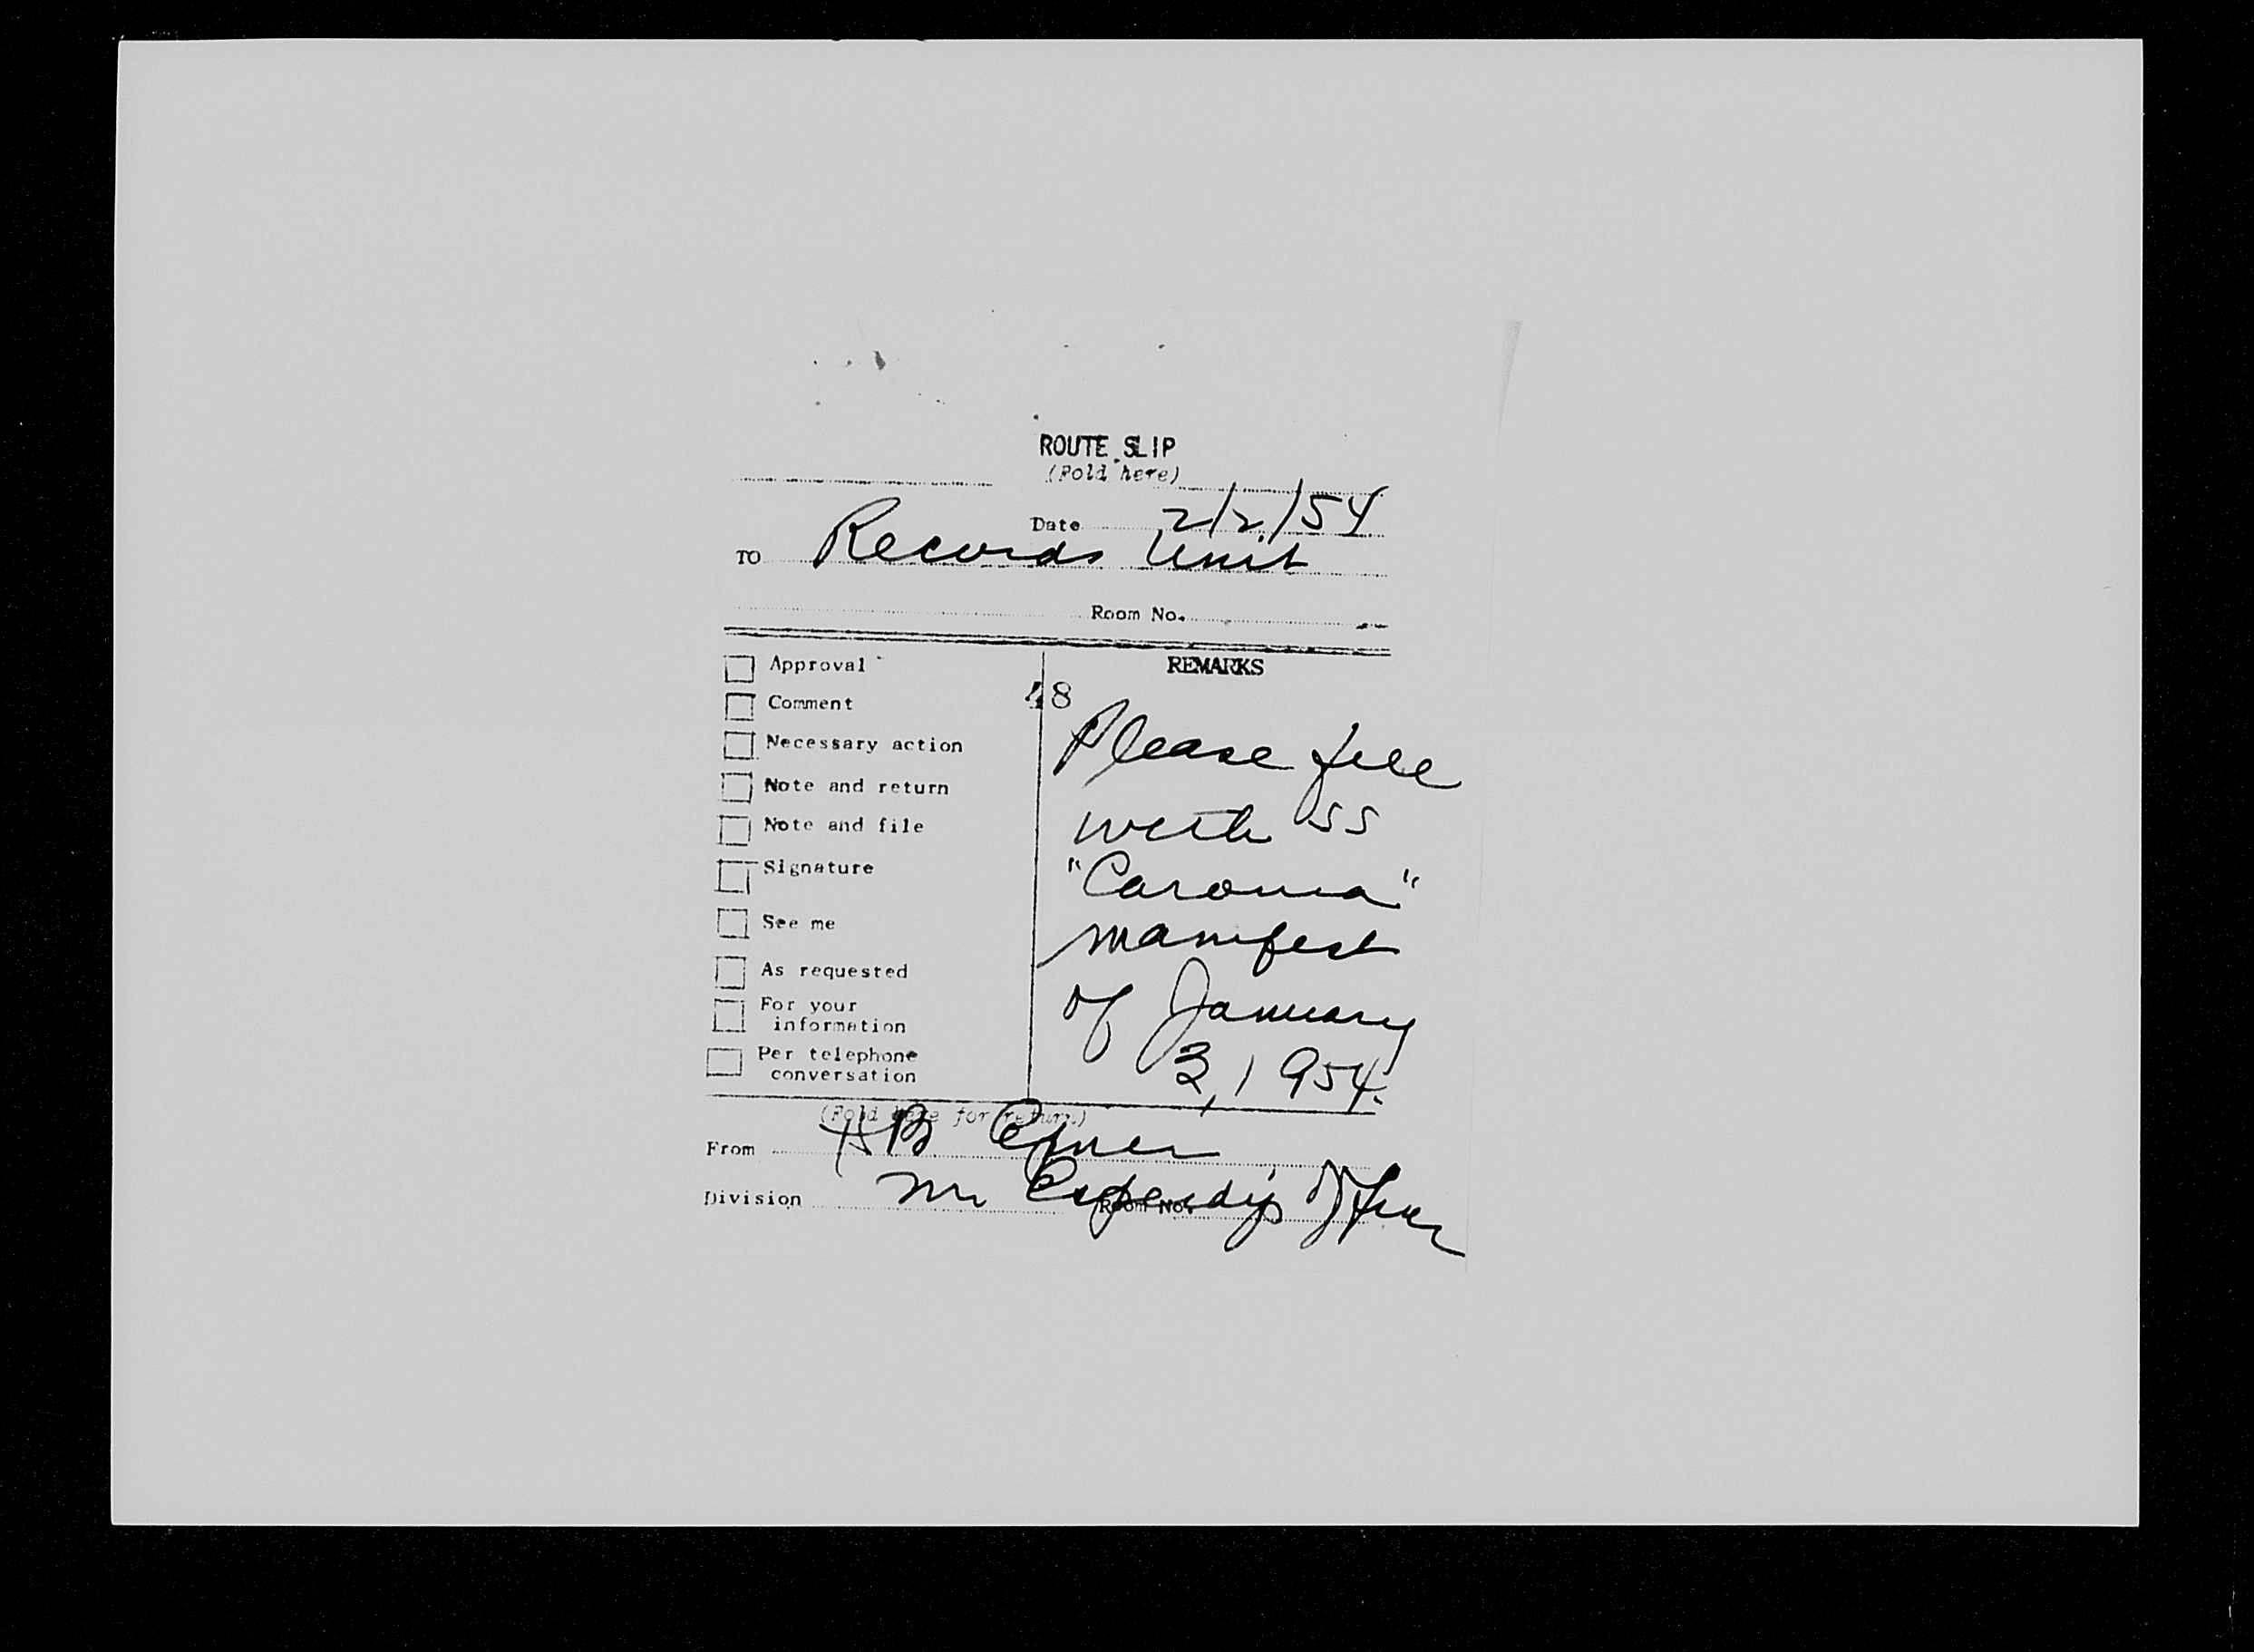 ROUTE SLIP
(Fold here)
Date 2/2/54
TO Records Unit
Room No.
Approval
Comment
Necessary action
Note and return
Note and file
Signature
See me
As requested
For your
information
Per telephone
conversation
REMARKS
48
Please file
with SS
"Caronia"
manifest
of January
3, 1954.
(Fold here for return.)
From HB
Division Mr Office
Room No.